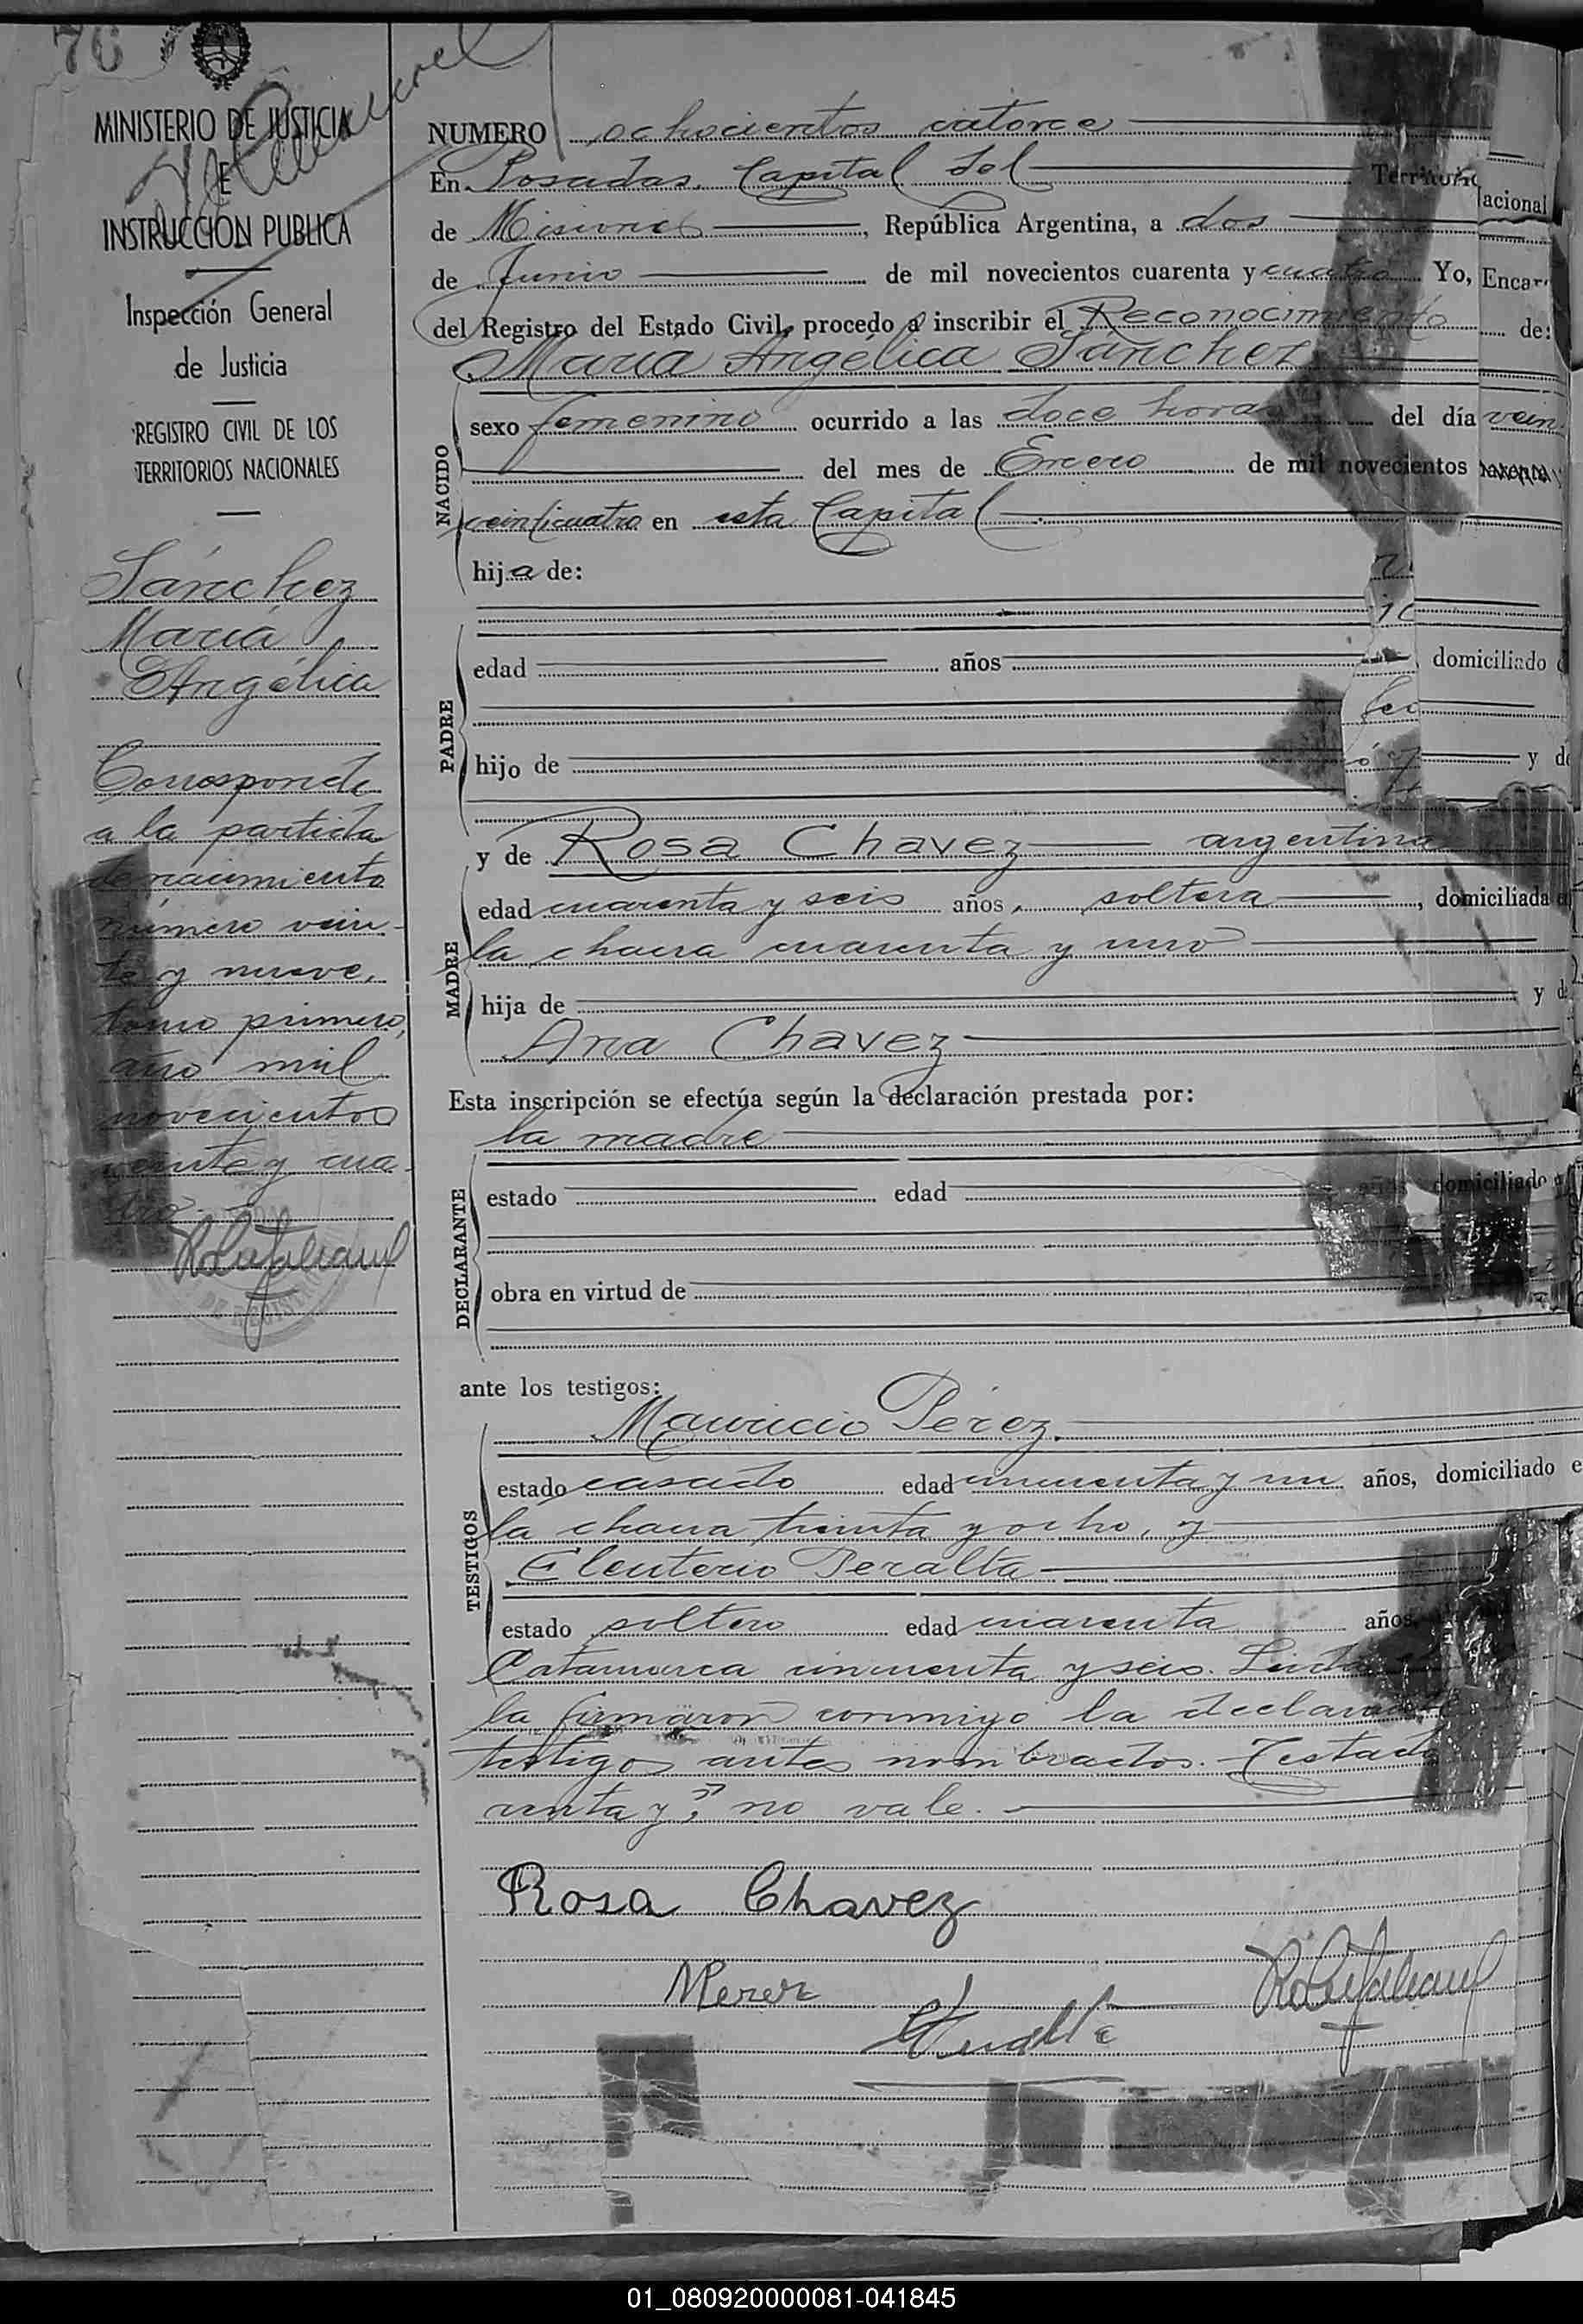 76
MINISTERIO DE JUSTICIA
E
INSTRUCCION PUBLICA
Inspección General
de Justicia
REGISTRO CIVIL DE LOS
TERRITORIOS NACIONALES
Sánchez
María
Angélica
Corresponde
a la partida
de nacimiento
número vein-
te y nueve,
tomo primero,
año mil
novecientos
veinte y cua-
tro.-
NUMERO ochocientos catorce
En Posadas, Capital del Territorio Nacional
de Misiones, República Argentina, a dos
de Junio de mil novecientos cuarenta y cuatro Yo, Encar
del Registro del Estado Civil, procedo a inscribir el Reconocimiento de:
María Angélica Sánchez
NACIDO
sexo femenino ocurrido a las doce horas del día vein
del mes de Enero de mil novecientos
veinticuatro en esta Capital
hija de:
PADRE
edad años domiciliado
hijo de y de
y de Rosa Chavez argentina
MADRE
edad cuarenta y seis años, soltera, domiciliada en
la chacra cuarenta y uno
hija de y de
Ana Chavez
Esta inscripción se efectúa según la declaración prestada por:
la madre
DECLARANTE
estado edad años domiciliado
obra en virtud de
ante los testigos:
Mauricio Pérez.
TESTIGOS
estado casado edad cincuenta y un años, domiciliado e
la chacra treinta y ocho, y
Eleuterio Peralta
estado soltero edad cuarenta años,
Catamarca cincuenta y seis. Leída
la firmaron conmigo la declarante
testigos antes nombrados. Testado
renta y": no vale.
Rosa Chavez
MPerez
01_080920000081-041845